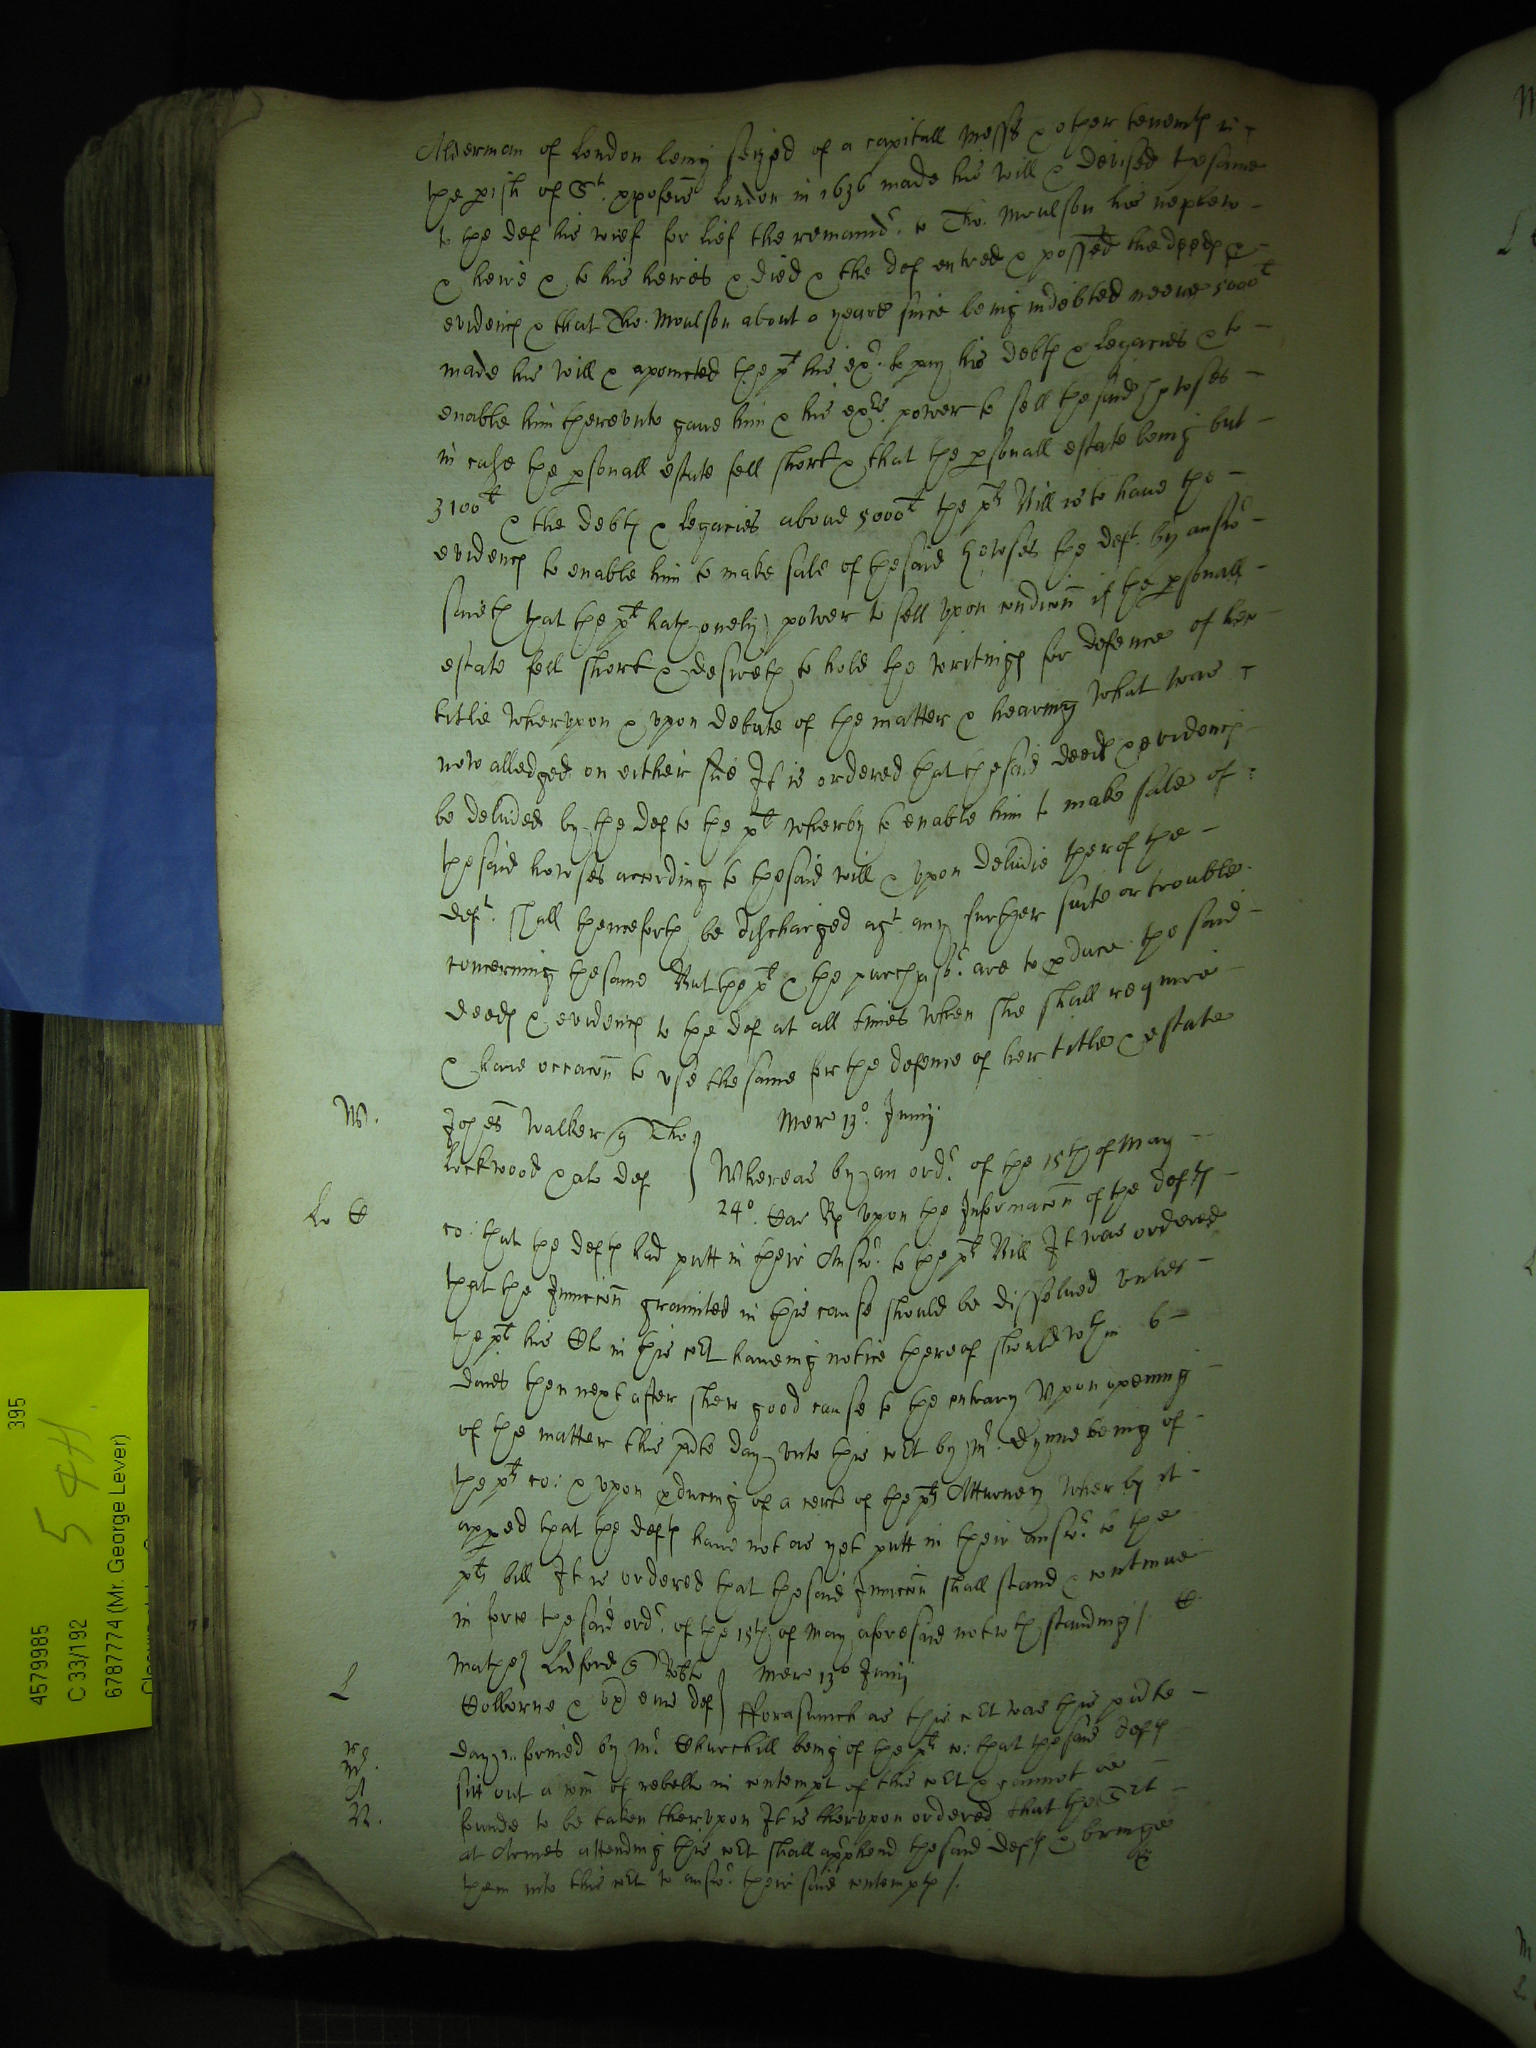 Alderman of London being seized of a capitall Messe & other tenemts in
the pish of St. Xpofers London in 1636 made his will & devised the same
to the def his wief for lief the remaindr. to Tho. Moulson his nephew
& heire & to his heires & died & the def entred & possed the deeds &
evidencs & that Tho. Moulson about a yeare since being indebted neere 5000l
made his will & apointed the plt his exr. to pay his debts & Legacies & to
enable him therevnto gave him & his exrs. power to sell the said howses
in case the psonall estate fell short & that the psonall estate being but
3100l & the debts & Legacies above 5000l the plts Bill is to have the
evidencs to enable him to make sale of the said howses the deft. by answr
saieth that the plt hath onely power to sell vpon condicon if the psonall
estate fell short & desireth to hold the writings for defence of her
title Whervpon & vpon debate of the matter & hearing what was
now alledged on either side It is ordered that the said deeds & evidencs
be delivred by the def to the plt wherby to enable him to make sale of
the said howses according to the said will & vpon deliverie therof the
deft. shall thenceforth be discharged agt any further suite or trouble
concerning the same But the plt & the purchasr. are to pduce the said
deeds & evidencs to the def at all times when she shall require
& have occacon to vse the same for the defence of her title & estate
W.
Johes Walker q Tho
Mer 13o. Junij
Lockwood & al def
Whereas by an ordr. of the 15th of May
24o. Car Rx vpon the Informacon of the defts
co: that the defts had putt in their Answr. to the plts Bill It was ordered
that the Iniuccon graunted in this cause should be dissolved vnles
the plt his Cl in this cort haveing notice thereof should wthin 6
daies then next after shew good cause to the contrary Vpon opening
of the matter this pnte day vnto this cort by Mr. being of
the plts co: & vpon pducing of a certe of the plts Atturney wherby it
apped that the defts have not as yet putt in their answr. to the
plts bill It is ordered that the said Iniuccon shall stand & continue
in force the said ordr. of the 15th of May aforesaid notwthstanding /
L
Mathe Ludford q Robte
Mer 13o Junij
Colborne & vx eius def
Fforasmuch as this cort was this pnte
day informed by Mr. Churchill being of the plts co: that the said defts
sitt out a com of rebellio in contempt of this cort & cannot be
founde to be taken thervpon It is thervpon ordered that the Srt
at Armes attending this cort shall apphend the said defts & bringe
them into this cort to answr. their said contempts /.
395
5 4H.
4579985
C 33/192
6787774 (Mr. George Lever)